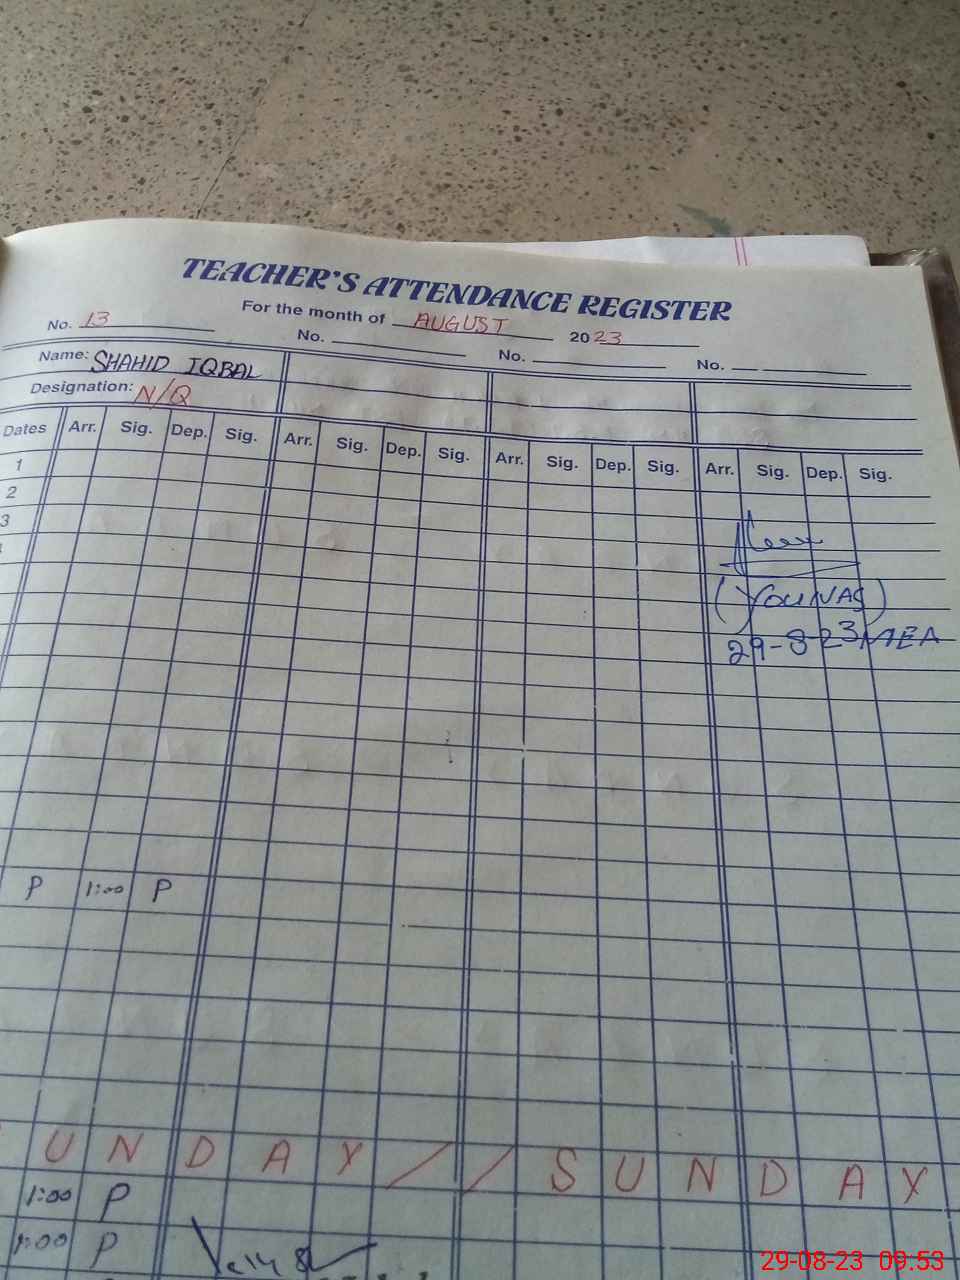 TEACHER'S ATTENDANCE REGISTER
For the month of AUGUST 2023
No. 13 No. No. No.
Name: SHAHID IQBAL
Designation: N/Q
Dates Arr. Sig. Dep. Sig. Arr. Sig. Dep. Sig. Arr. Sig. Dep. Sig. Arr. Sig. Dep. Sig.
1
2
3
(YOUNAS)
29-8-23 MEA
P 1:00 P
U N D A Y / / S U N D A Y
1:00 P
1:00 P
29-08-23 09.53